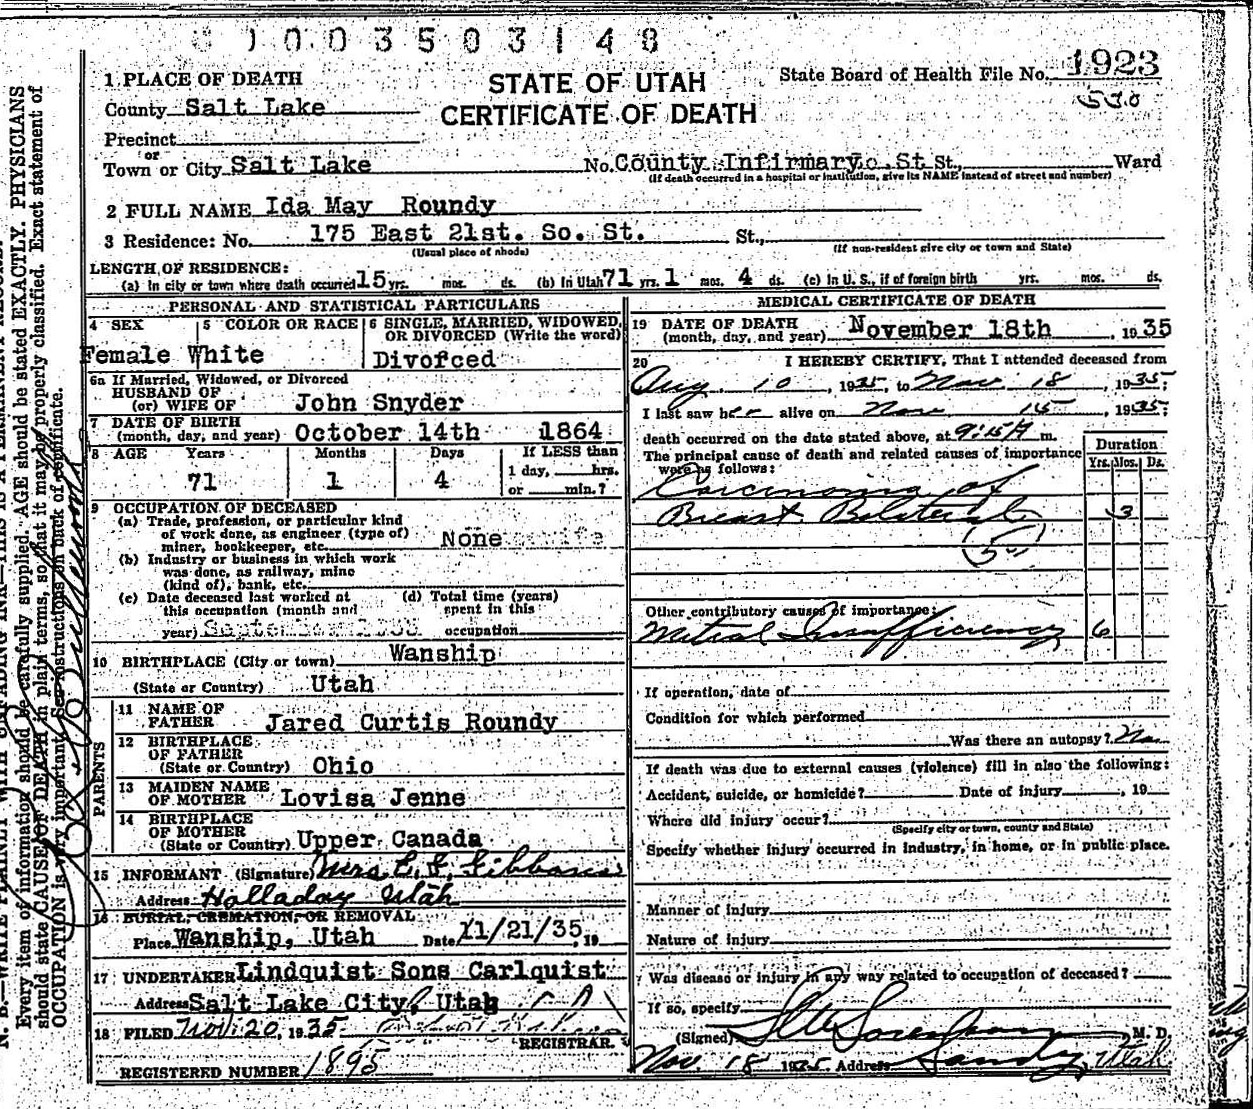 0 1 0 0 3 5 0 3 1 4 8
1 PLACE OF DEATH
STATE OF UTAH
CERTIFICATE OF DEATH
State Board of Health File No. 1923
530
County Salt Lake
Precinct
or
Town or City Salt Lake No. County Infirmary, St St., Ward
(If death occurred in a hospital or institution, give its NAME instead of street and number)
2 FULL NAME Ida May Roundy
3 Residence: No. 175 East 21st. So. St. St.,
(Usual place of abode) (If non-resident give city or town and State)
LENGTH OF RESIDENCE:
(a) In city or town where death occurred 15 yrs. mos. ds. (b) In Utah 71 yrs. 1 mos. 4 ds. (c) In U. S., if of foreign birth yrs. mos. ds.
PERSONAL AND STATISTICAL PARTICULARS
4 SEX 5 COLOR OR RACE 6 SINGLE, MARRIED, WIDOWED,
OR DIVORCED (Write the word)
Female White Divorced
6a If Married, Widowed, or Divorced
HUSBAND OF
(or) WIFE OF John Snyder
7 DATE OF BIRTH
(month, day, and year) October 14th 1864
8 AGE Years Months Days If LESS than
1 day, hrs.
71 1 4 or min.?
9 OCCUPATION OF DECEASED
(a) Trade, profession, or particular kind
of work done, as engineer (type of)
miner, bookkeeper, etc. None
(b) Industry or business in which work
was done, as railway, mine
(kind of), bank, etc.
(c) Date deceased last worked at (d) Total time (years)
this occupation (month and spent in this
year) occupation
10 BIRTHPLACE (City or town) Wanship
(State or Country) Utah
PARENTS
11 NAME OF
FATHER Jared Curtis Roundy
12 BIRTHPLACE
OF FATHER
(State or Country) Ohio
13 MAIDEN NAME
OF MOTHER Lovisa Jenne
14 BIRTHPLACE
OF MOTHER
(State or Country) Upper Canada
15 INFORMANT (Signature) Mrs E. G. Gibbons
Address Holladay Utah
16 BURIAL, CREMATION, OR REMOVAL
Place Wanship, Utah Date 11/21/35, 19
17 UNDERTAKER Lindquist Sons Carlquist
Address Salt Lake City, Utah
18 FILED Nov. 20, 1935
REGISTRAR.
REGISTERED NUMBER 1895
MEDICAL CERTIFICATE OF DEATH
19 DATE OF DEATH
(month, day, and year) November 18th, 1935
20 I HEREBY CERTIFY, That I attended deceased from
Aug. 10, 1935, to Nov. 18, 1935;
I last saw her alive on Nov 15, 1935;
death occurred on the date stated above, at 9:15 A m.
The principal cause of death and related causes of importance
were as follows:
Duration
Yrs. Mos. Ds.
Carcinoma of
Breast Bilateral 3
(50)
Other contributory causes of importance:
Mitral Insufficiency 6
If operation, date of
Condition for which performed
Was there an autopsy? No
If death was due to external causes (violence) fill in also the following:
Accident, suicide, or homicide? Date of injury, 19
Where did injury occur?
(Specify city or town, county and State)
Specify whether injury occurred in industry, in home, or in public place.
Manner of injury
Nature of injury
Was disease or injury in any way related to occupation of deceased?
If so, specify
(Signed) M. D.
Nov. 18 1935 Address Sandy Utah
Every item of information should be carefully supplied. AGE should be stated EXACTLY. PHYSICIANS
should state CAUSE OF DEATH in plain terms, so that it may be properly classified. Exact statement of
OCCUPATION is very important. See instructions on back of certificate.